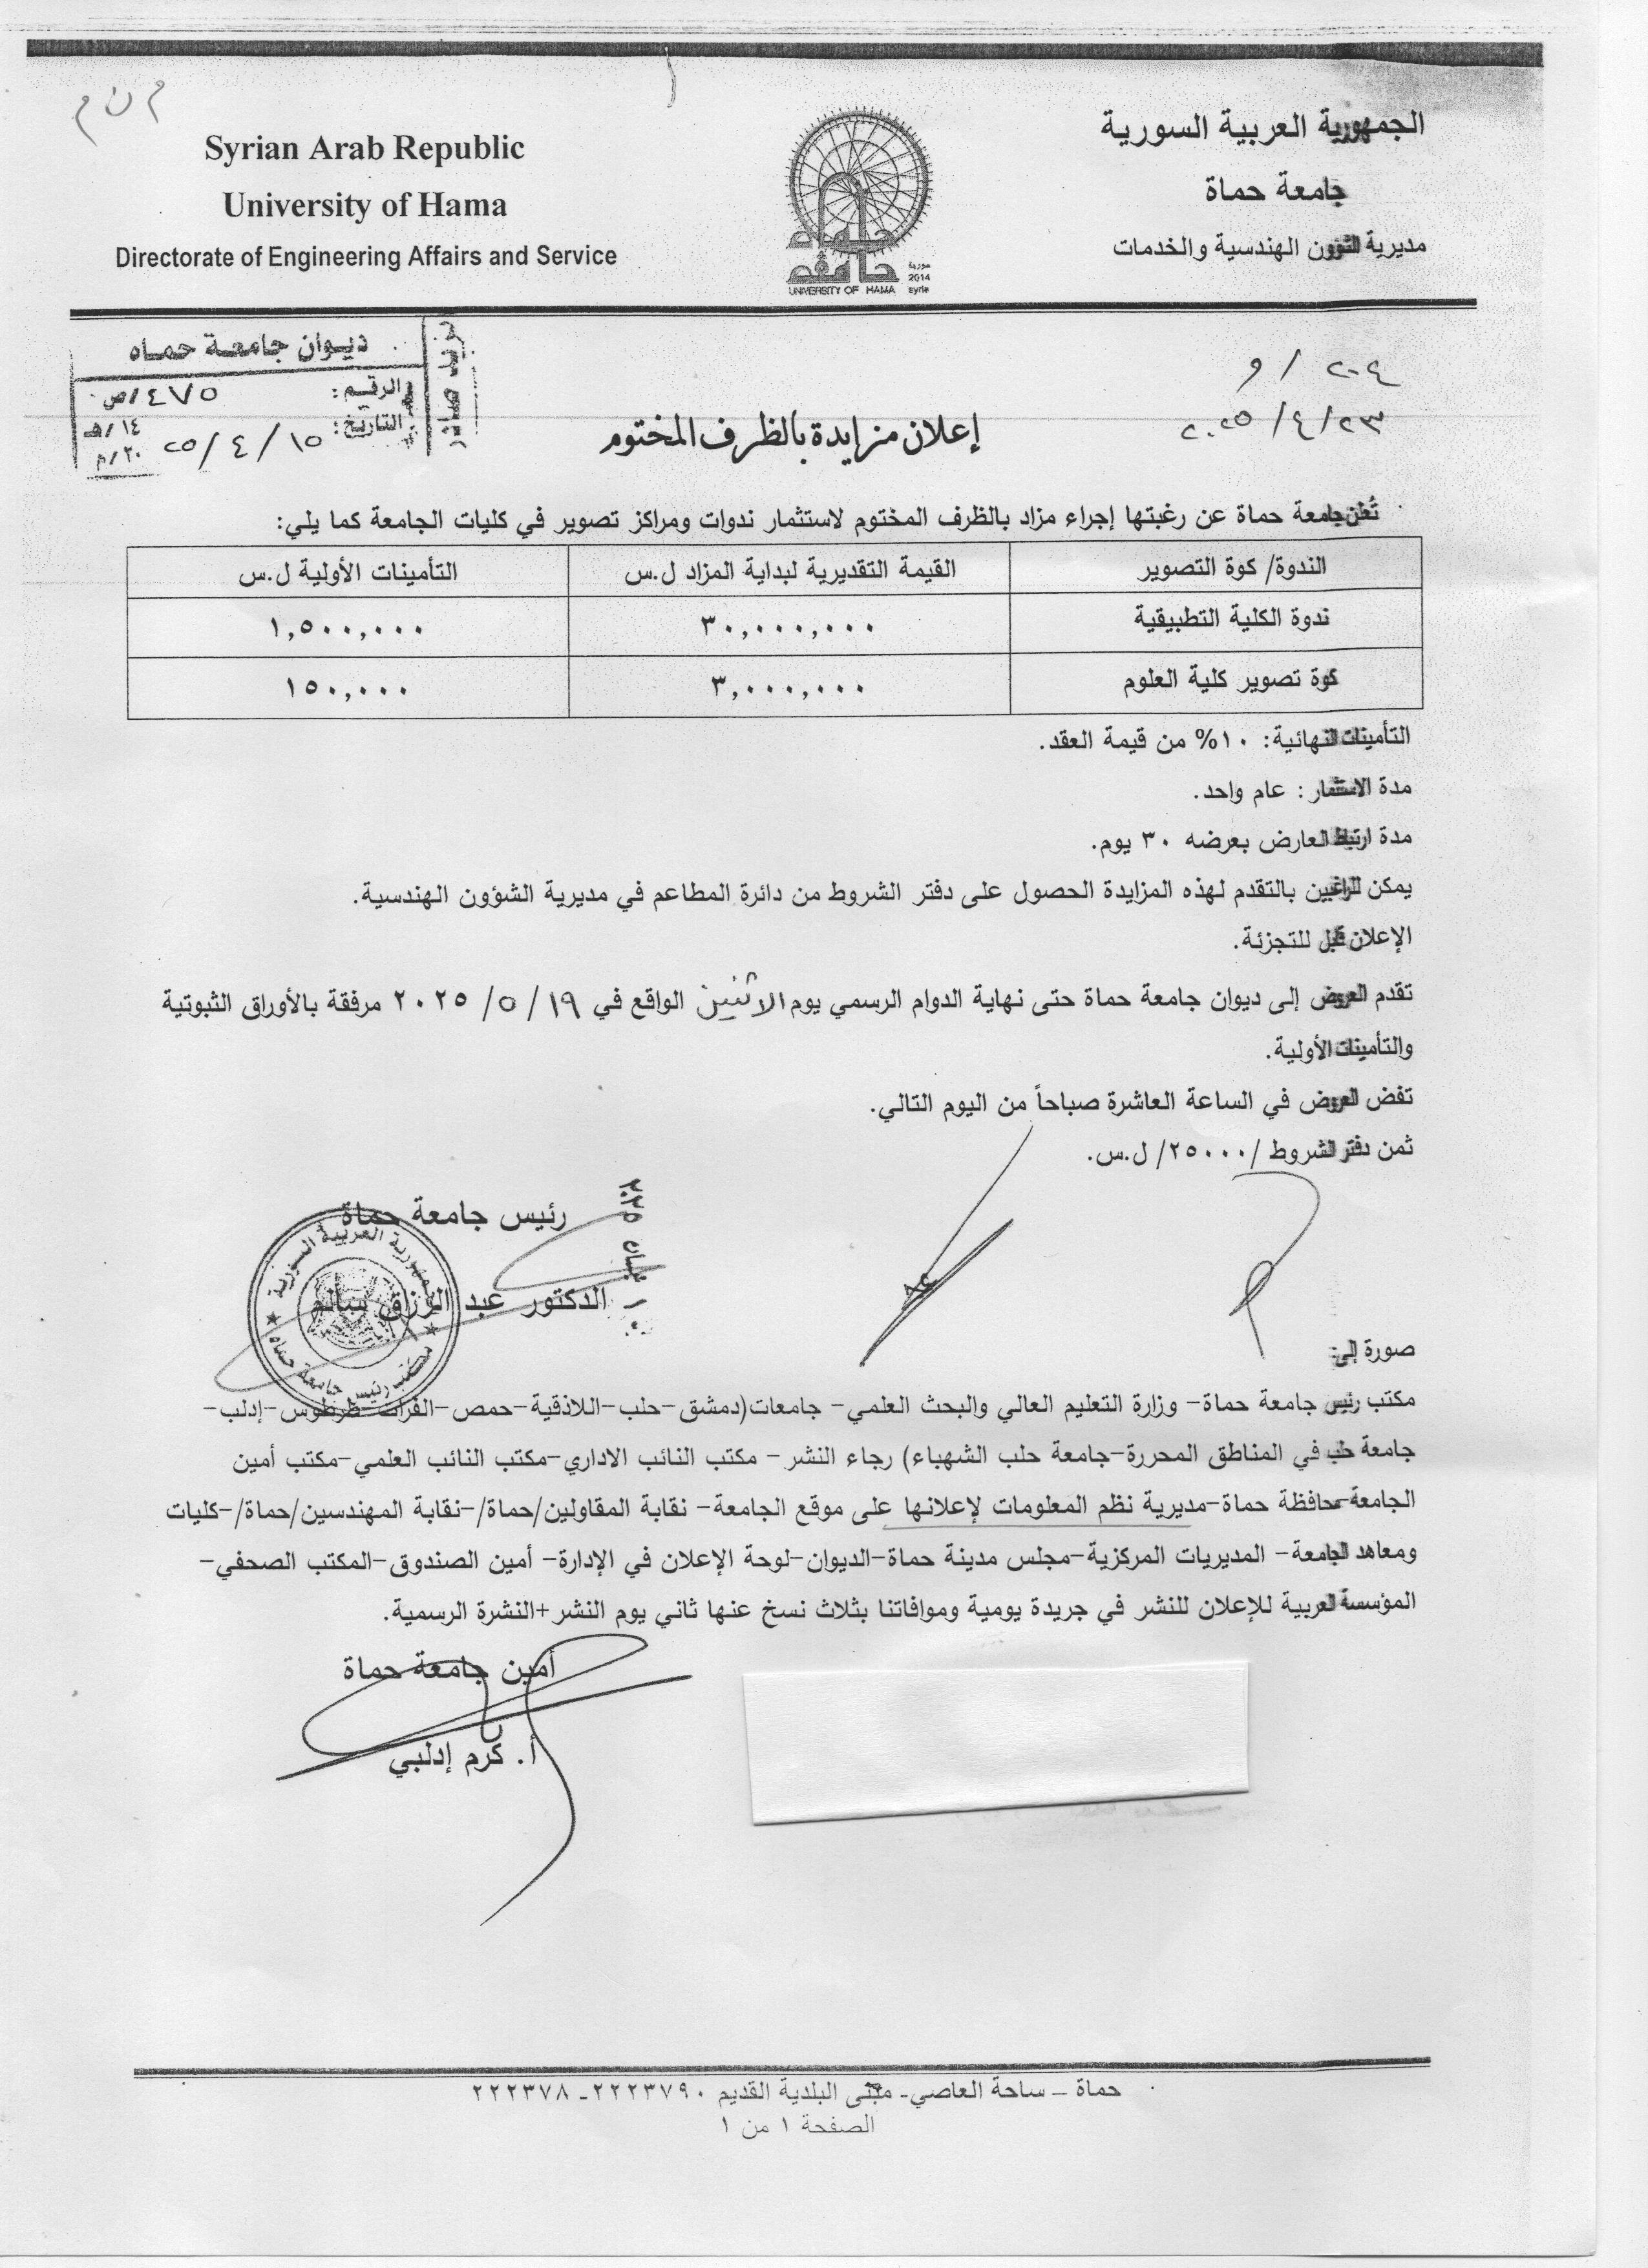 م ن م
Syrian Arab Republic
University of Hama
Directorate of Engineering Affairs and Service
الجمهورية العربية السورية
جامعة حماة
مديرية الشؤون الهندسية والخدمات
حماه
جامعة
سورية
2014
syria
UNIVERSITY OF HAMA
ديوان جامعة حماه
الرقم: ٤٧٥/ص
التاريخ: ١٥/٤/٢٥
١٤/هـ
٢٠/م
صادر
٢٠٤/و
٢٣/٤/٢٠٢٥
إعلان مزايدة بالظرف المختوم
تُعلن جامعة حماة عن رغبتها إجراء مزاد بالظرف المختوم لاستثمار ندوات ومراكز تصوير في كليات الجامعة كما يلي:
الندوة/ كوة التصوير القيمة التقديرية لبداية المزاد ل.س التأمينات الأولية ل.س
ندوة الكلية التطبيقية ٣٠,٠٠٠,٠٠٠ ١,٥٠٠,٠٠٠
كوة تصوير كلية العلوم ٣,٠٠٠,٠٠٠ ١٥٠,٠٠٠
التأمينات النهائية: ١٠% من قيمة العقد.
مدة الاستثمار : عام واحد.
مدة ارتباط العارض بعرضه ٣٠ يوم.
يمكن للراغبين بالتقدم لهذه المزايدة الحصول على دفتر الشروط من دائرة المطاعم في مديرية الشؤون الهندسية.
الإعلان قابل للتجزئة.
تقدم العروض إلى ديوان جامعة حماة حتى نهاية الدوام الرسمي يوم الاثنين الواقع في ١٩/ ٥/ ٢٠٢٥ مرفقة بالأوراق الثبوتية
والتأمينات الأولية.
تفض العروض في الساعة العاشرة صباحاً من اليوم التالي.
ثمن دفتر الشروط /٢٥٠٠٠/ ل.س.
رئيس جامعة حماة
الدكتور عبد الرزاق سالم
١٠ نيسان ٢٠٢٥
الجمهورية العربية السورية
مكتب رئيس جامعة حماه
صورة إلى:
مكتب رئيس جامعة حماة- وزارة التعليم العالي والبحث العلمي- جامعات(دمشق-حلب-اللاذقية-حمص-الفرات-طرطوس-إدلب-
جامعة حلب في المناطق المحررة-جامعة حلب الشهباء) رجاء النشر- مكتب النائب الاداري-مكتب النائب العلمي-مكتب أمين
الجامعة-محافظة حماة-مديرية نظم المعلومات لإعلانها على موقع الجامعة- نقابة المقاولين/حماة/-نقابة المهندسين/حماة/-كليات
ومعاهد الجامعة- المديريات المركزية-مجلس مدينة حماة-الديوان-لوحة الإعلان في الإدارة- أمين الصندوق-المكتب الصحفي-
المؤسسة العربية للإعلان للنشر في جريدة يومية وموافاتنا بثلاث نسخ عنها ثاني يوم النشر+النشرة الرسمية.
أمين جامعة حماة
أ. كرم إدلبي
حماة – ساحة العاصي- مبنى البلدية القديم ٢٢٢٣٧٩٠- ٢٢٢٣٧٨
الصفحة ١ من ١